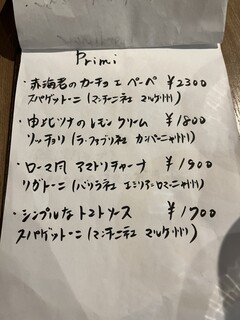 Primi
・赤海老のカーチョ エ ペーペ ¥2300
スパゲットーニ (マンチーニ社 マルケ州)
・由比ツナのレモンクリーム ¥1800
リッチョリ (ラ・ファブリカ社 カンパーニャ州)
・ローマ風 アマトリチャーナ ¥1900
リガトーニ (バリラ社 エミリア=ロマーニャ州)
・シンプルなトマトソース ¥1700
スパゲットーニ (マンチーニ社 マルケ州)